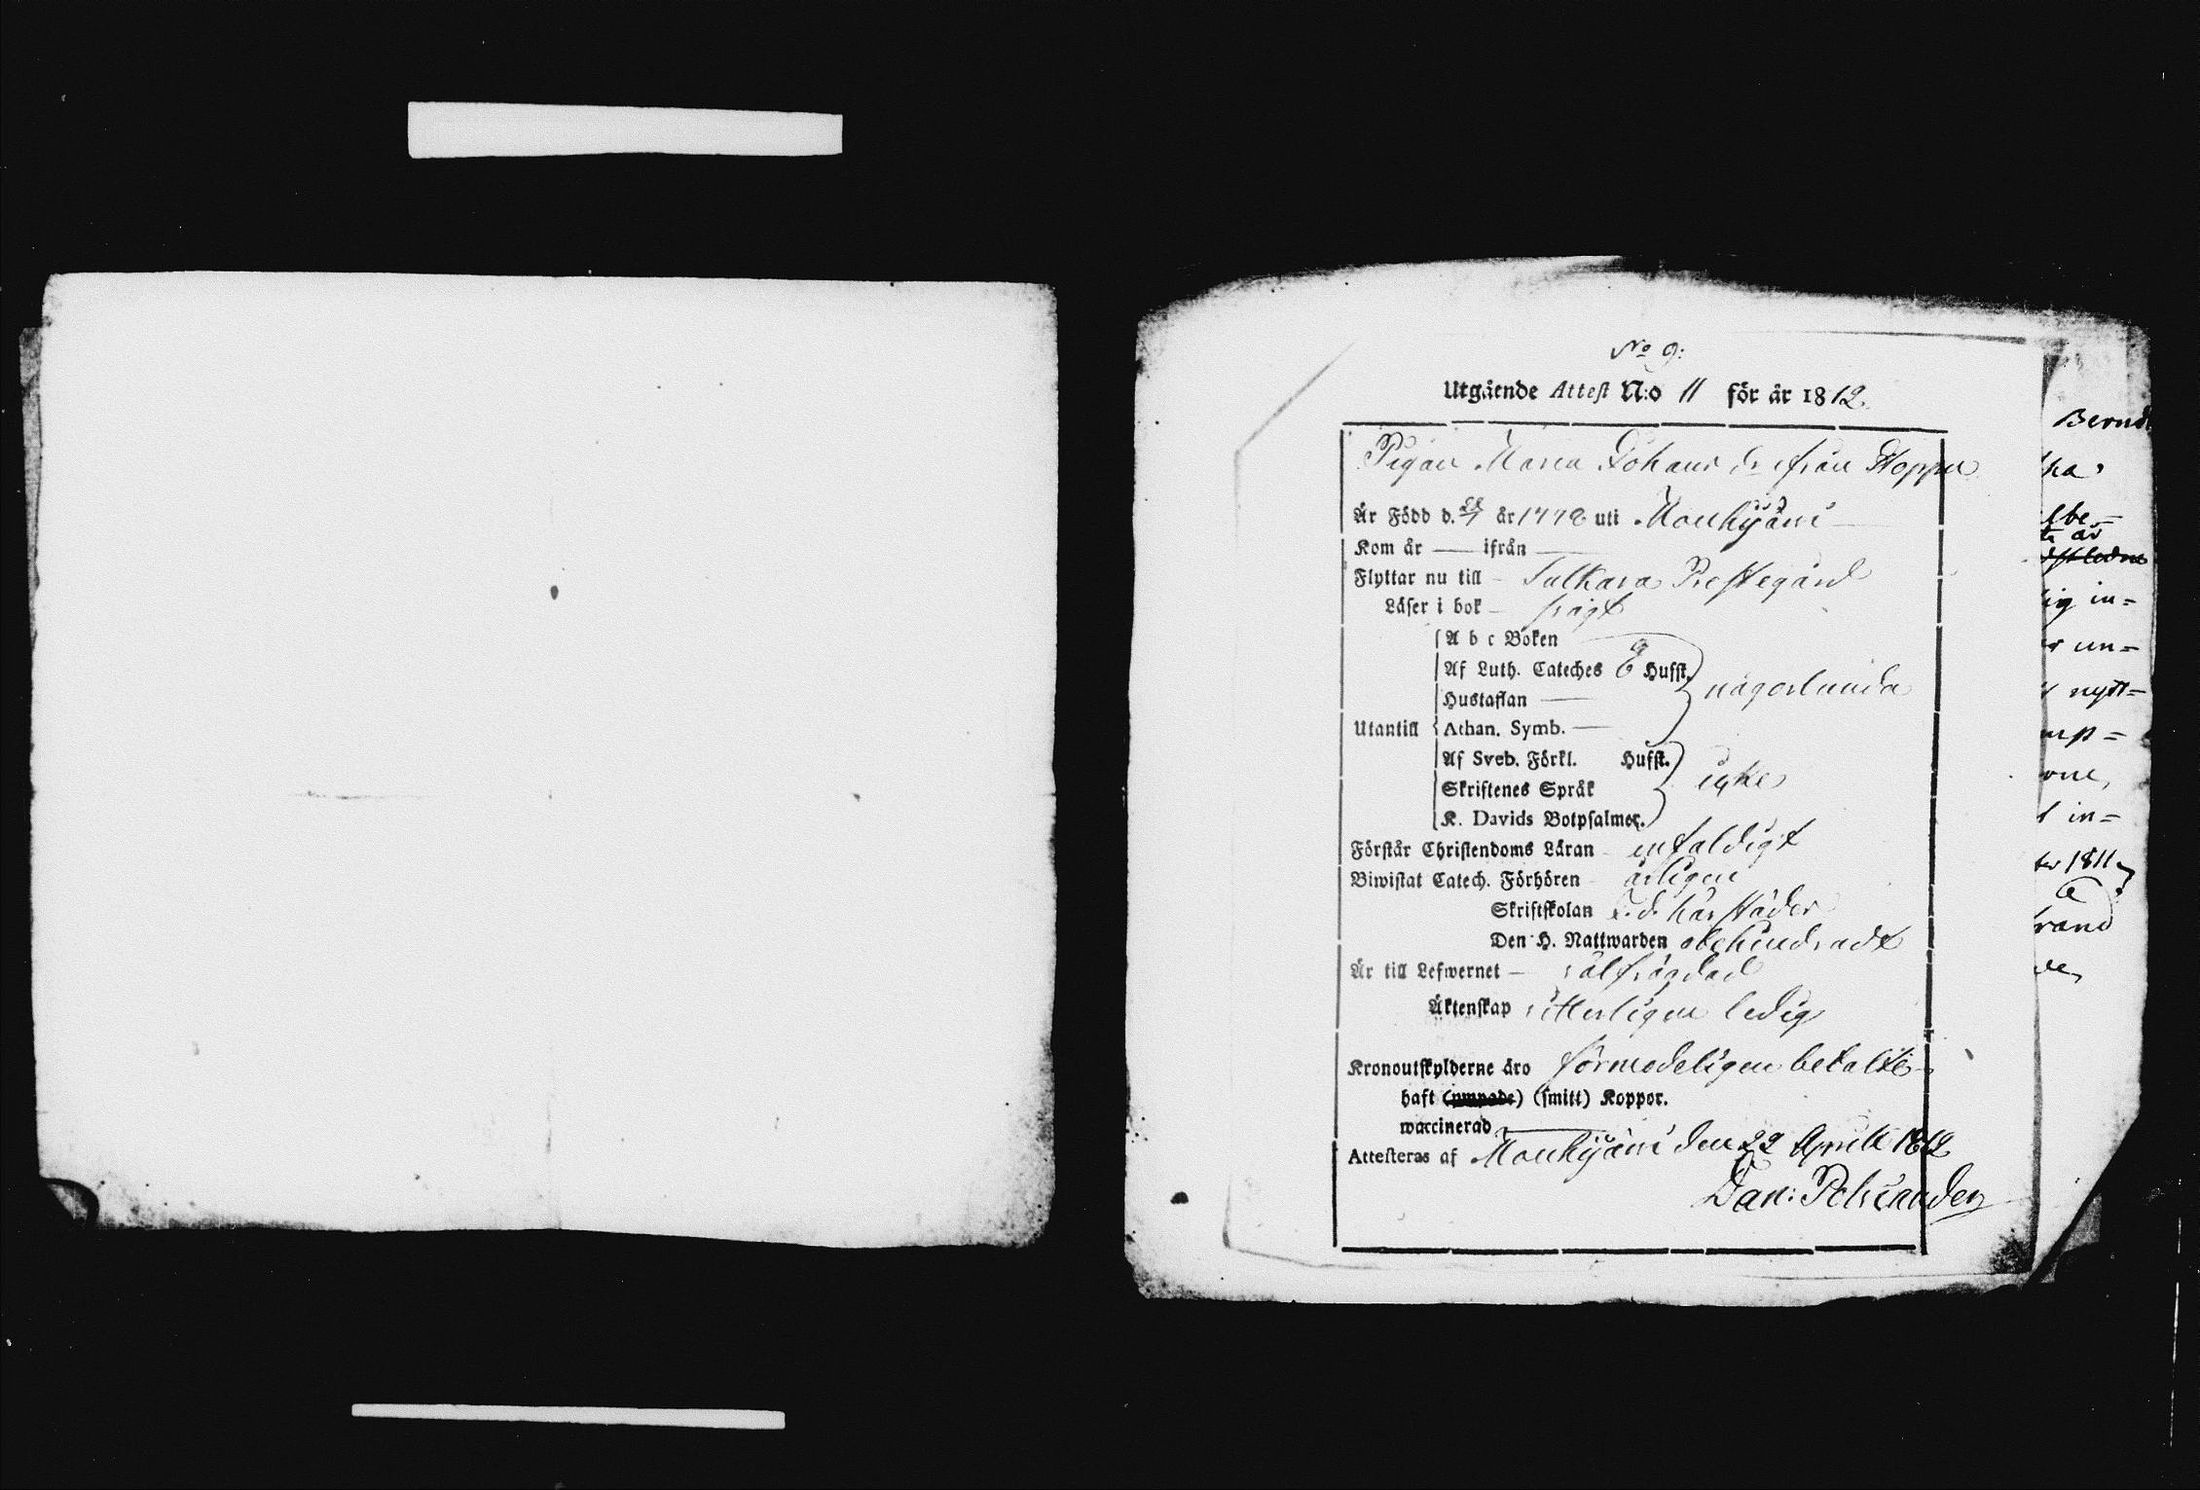 No 9:
Utgående Attest N:o 11 för år 1812
Pigan Maria Johans dr ifrån Hoppu
Är Född d. år 1778 uti Mouhijärvi
Kom år — ifrån —
Flyttar nu till - Tulkara Prestegård
Läser i bok - trögt
A b c Boken
Af Luth. Cateches 6 Hufst.
Hustaflan — någorlunda
Utantill Athan. Symb. —
Af Sveb. Förkl. Hufst.
Skriftenes Språk icke
K. Davids Botpsalmer.
Förstår Christendoms Läran enfaldigt
Biwistat Catech. Förhören årligen
Skriftskolan
Den H. Nattwarden obehindradt
Är till Lefwernet — välfrägdad
Äktenskap vitterligen ledig
Kronoutskylderne äro förmodeligen betalte
haft (ympade) (smitt) Koppor.
waccinerad —
Attesteras af Mouhijärvi den 22 Aprill 1812
Dan: Polviander
Bernd
ka
lbe-
te av
ig in=
r un=
nytt=
mp=
rne,
t in=
ter 1811
rand
de,